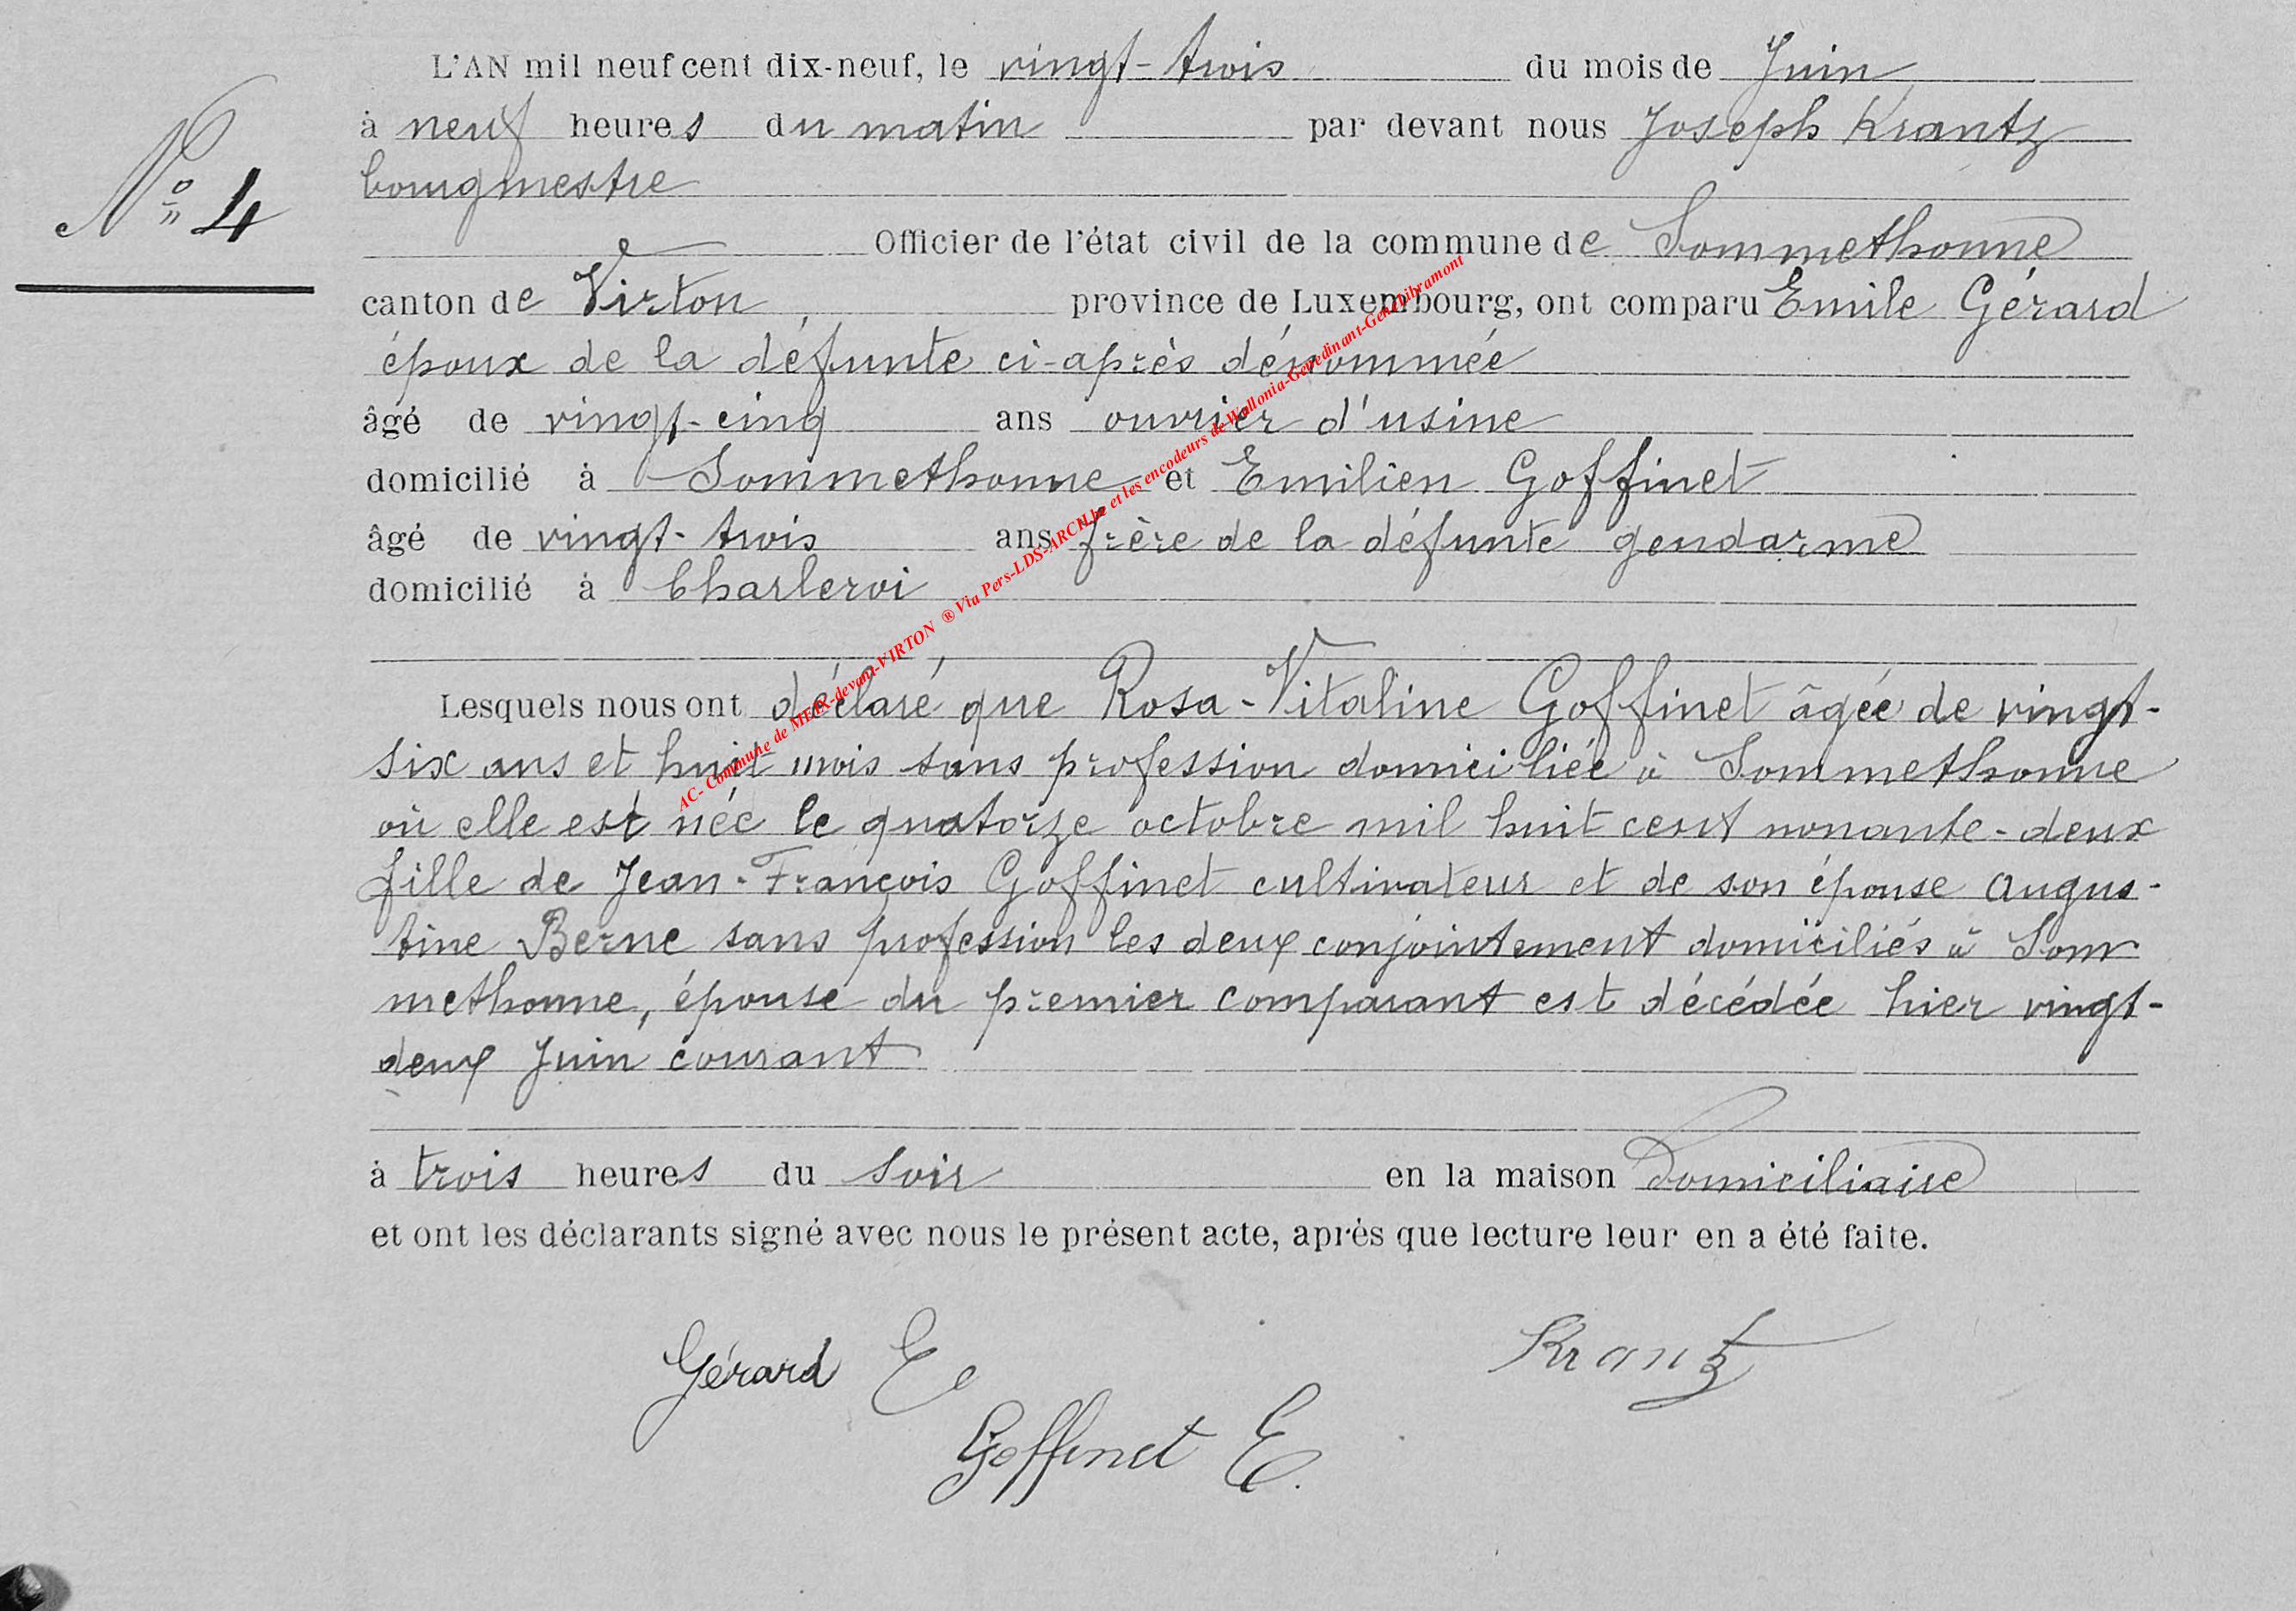 L'AN mil neuf cent dix-neuf, le vingt-trois du mois de Juin
à neuf heures du matin par devant nous Joseph Krantz
bourgmestre
N° 4
Officier de l'état civil de la commune de Sommethonne
canton de Virton, province de Luxembourg, ont comparu Emile Gérard
époux de la défunte ci-après dénommée
âgé de vingt-cinq ans ouvrier d'usine
domicilié à Sommethonne et Emilien Goffinet
âgé de vingt-trois ans frère de la défunte gendarme
domicilié à Charleroi
AC- Commune de MEIX-devant-VIRTON ® Via Pers-LDS-ARCH.be et les encodeurs de Wallonia-Genedinant-GeneLibramont
Lesquels nous ont déclaré que Rosa-Vitaline Goffinet âgée de vingt-
six ans et huit mois sans profession domiciliée à Sommethonne
où elle est née le quatorze octobre mil huit cent nonante-deux
fille de Jean-François Goffinet cultivateur et de son épouse Augus-
tine Berne sans profession les deux conjointement domiciliés à Som
methonne, épouse du premier comparant est décédée hier vingt-
deux Juin courant
à trois heures du soir en la maison domiciliaire
et ont les déclarants signé avec nous le présent acte, après que lecture leur en a été faite.
Gérard E Krantz
Goffinet E.